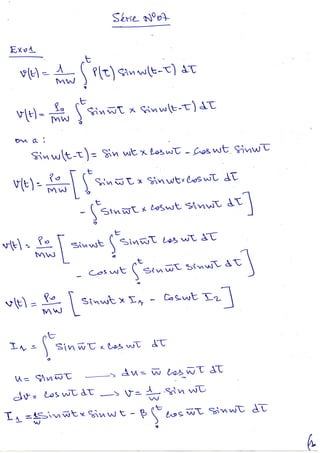 Série N°07
Exo1
v(t) = 1/MW ∫^t P(τ) sin w(t-τ) dτ
v(t) = P₀/MW ∫^t sin w̄τ × sin w(t-τ) dτ
on a :
sin w(t-τ) = sin wt × cos wτ - cos wt sin wτ
v(t) = P₀/MW [ ∫^t sin w̄τ × sin wt × cos wτ dτ
- ∫^t sin w̄τ × cos wt sin wτ dτ ]
v(t) = P₀/MW [ sin wt ∫^t sin w̄τ cos wτ dτ
- cos wt ∫^t sin w̄τ sin wτ dτ ]
v(t) = P₀/MW [ sin wt × I₁ - cos wt I₂ ]
I₁ = ∫^t sin w̄τ × cos wτ dτ
u = sin w̄τ → du = w̄ cos w̄τ dτ
dv = cos wτ dτ → v = 1/w sin wτ
I₁ = 1/w sin w̄t × sin wt - β ∫^t cos w̄τ sin wτ dτ